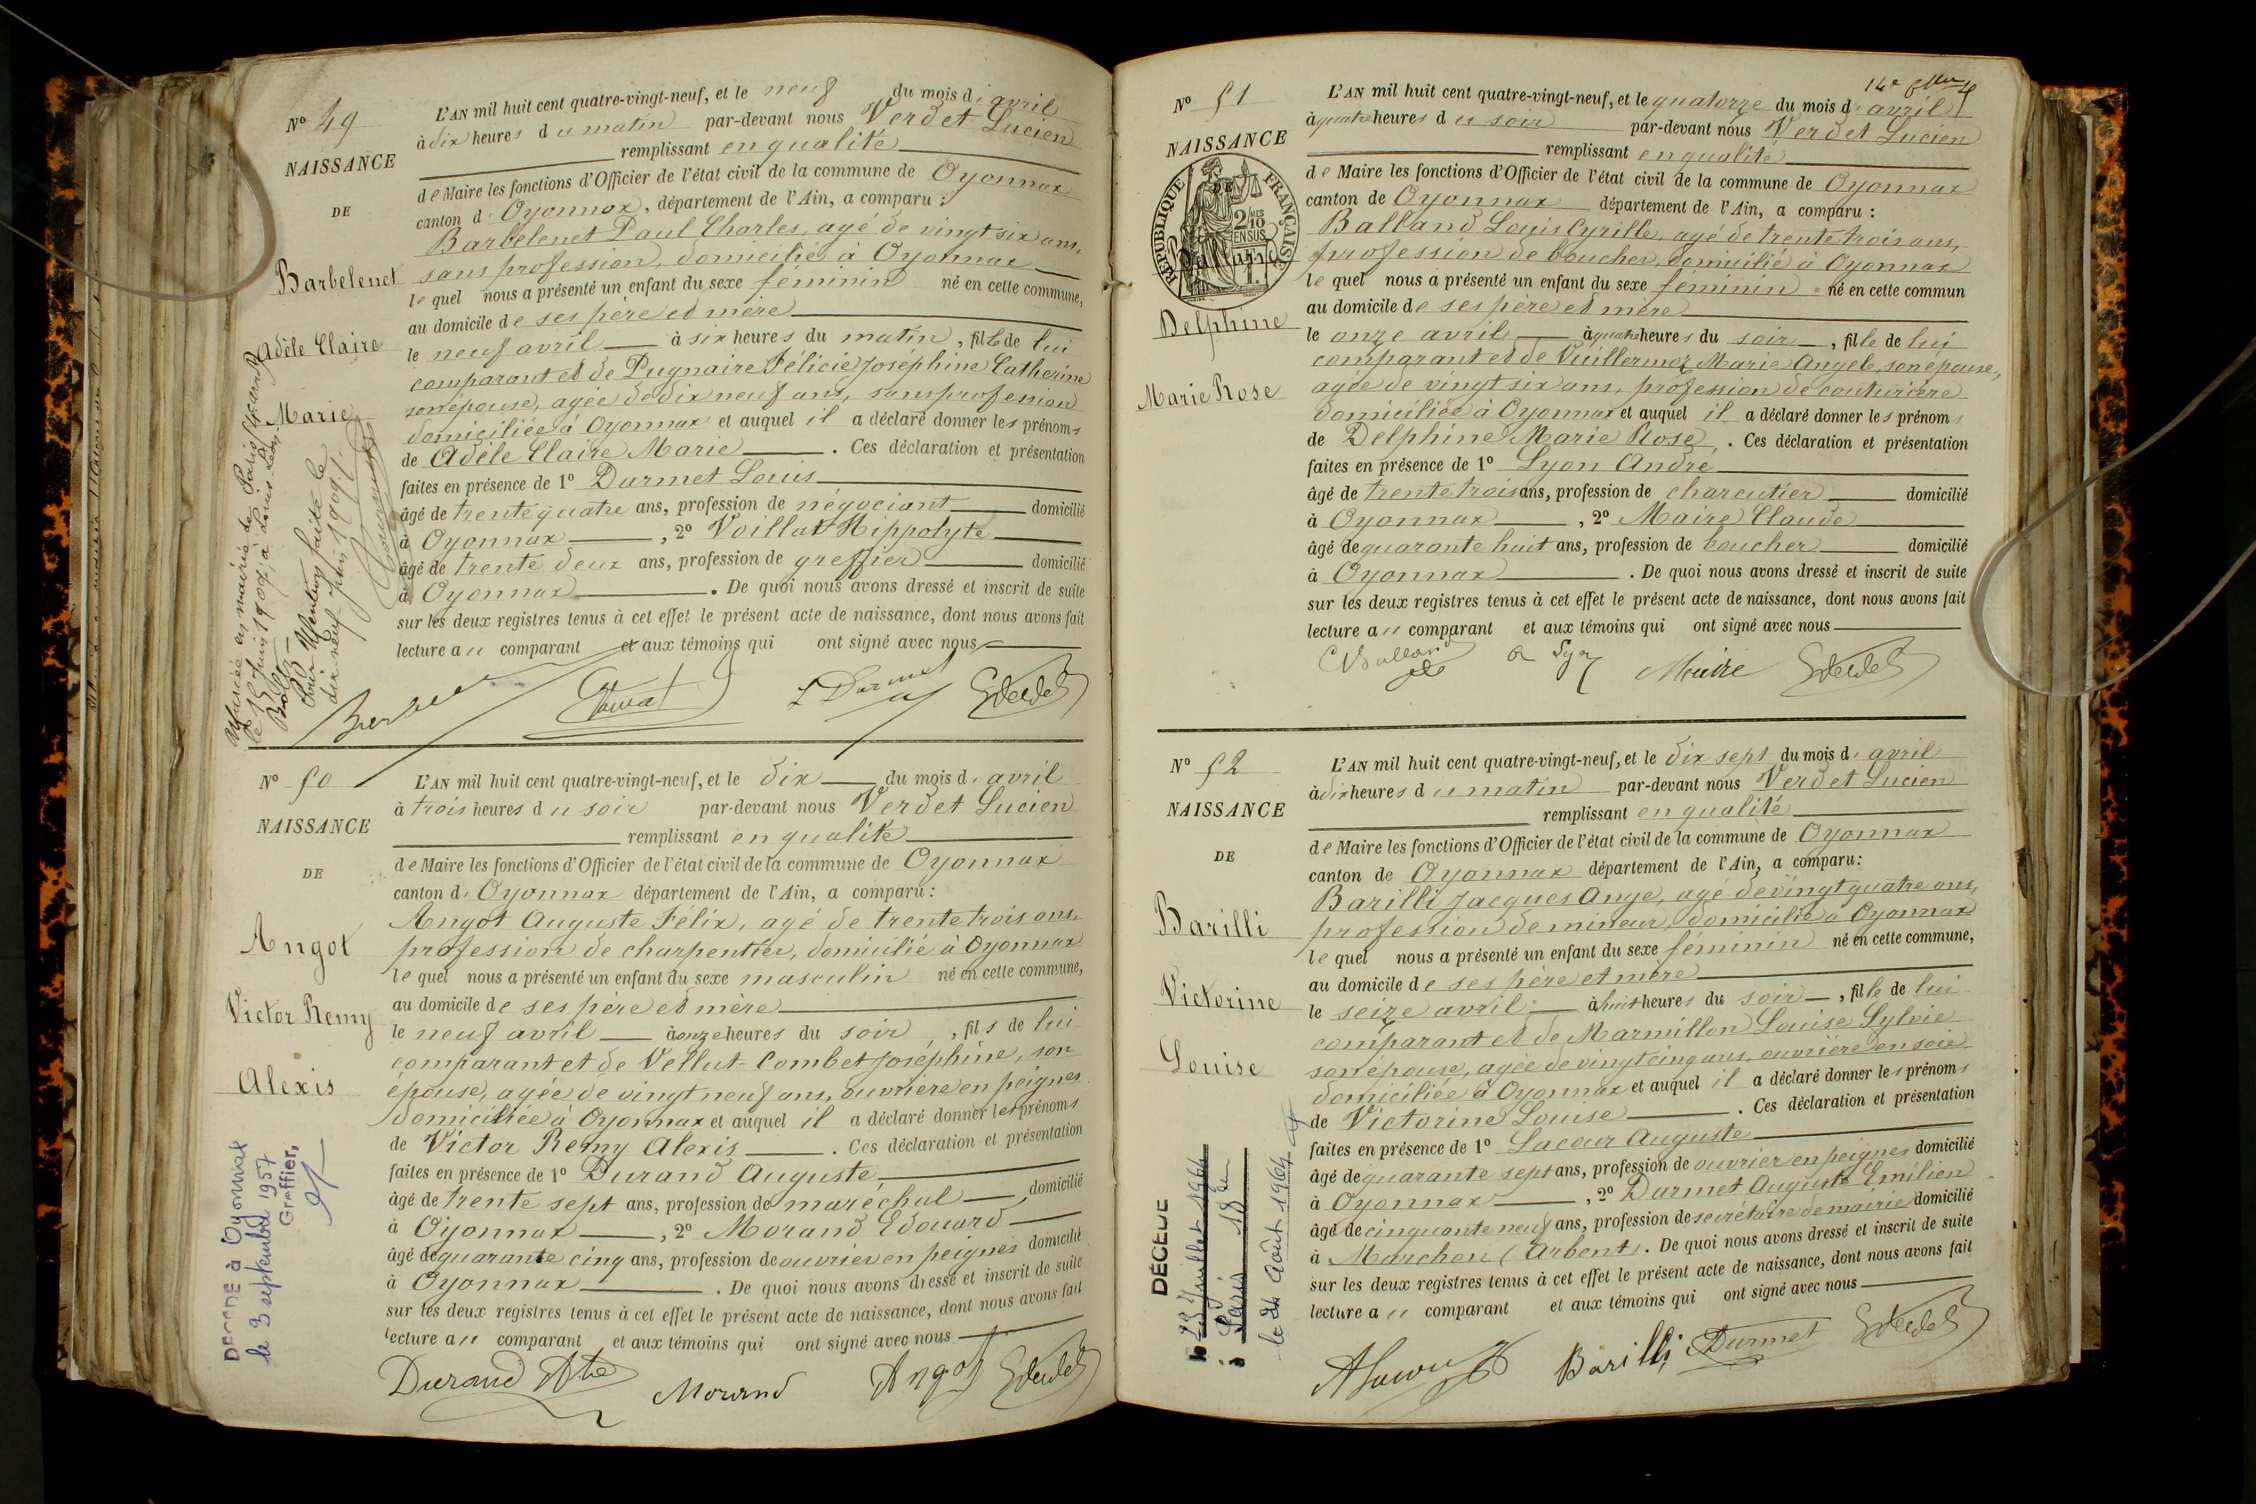 Nº 49
NAISSANCE
DE
Barbelenet
Adèle Claire
Marie
Mariée en mairie de Paris
le 15 juin 1909, à Louis Léon
Mention faite le
dix neuf juin 1909.
L'AN mil huit cent quatre-vingt-neuf, et le neuf du mois d'avril
à dix heures du matin par-devant nous Verdet Lucien
remplissant en qualité
de Maire les fonctions d'Officier de l'état civil de la commune de Oyonnax
canton d'Oyonnax, département de l'Ain, a comparu :
Barbelenet Paul Charles, agé de vingt six ans,
sans profession, domicilié à Oyonnax
lequel nous a présenté un enfant du sexe féminin né en cette commune,
au domicile de ses père et mère
le neuf avril à six heures du matin, fille de lui
comparant et de Pugnaire Félicie Joséphine Catherine
son épouse, agée de dix neuf ans, sans profession
domiciliée à Oyonnax et auquel il a déclaré donner les prénoms
de Adèle Claire Marie. Ces déclaration et présentation
faites en présence de 1º Durmet Louis
âgé de trente quatre ans, profession de négociant domicilié
à Oyonnax, 2º Voillat Hippolyte
âgé de trente deux ans, profession de greffier domicilié
à Oyonnax. De quoi nous avons dressé et inscrit de suite
sur les deux registres tenus à cet effet le présent acte de naissance, dont nous avons fait
lecture au comparant et aux témoins qui ont signé avec nous
L Durmet
Nº 50
NAISSANCE
DE
Angot
Victor Remy
Alexis
DÉCÉDÉ à Oyonnax
le 3 septembre 1957
Greffier,
L'AN mil huit cent quatre-vingt-neuf, et le dix du mois d'avril
à trois heures du soir par-devant nous Verdet Lucien
remplissant en qualité
de Maire les fonctions d'Officier de l'état civil de la commune de Oyonnax
canton d'Oyonnax département de l'Ain, a comparu :
Angot Auguste Félix, agé de trente trois ans,
profession de charpentier, domicilié à Oyonnax
lequel nous a présenté un enfant du sexe masculin né en cette commune,
au domicile de ses père et mère
le neuf avril à onze heures du soir, fils de lui
comparant et de Vellut-Combet Joséphine, son
épouse, agée de vingt neuf ans, ouvrière en peignes
domiciliée à Oyonnax et auquel il a déclaré donner les prénoms
de Victor Remy Alexis. Ces déclaration et présentation
faites en présence de 1º Durand Auguste,
âgé de trente sept ans, profession de maréchal, domicilié
à Oyonnax, 2º Morand Edouard
âgé de quarante cinq ans, profession de ouvrier en peignes domicilié
à Oyonnax. De quoi nous avons dressé et inscrit de suite
sur les deux registres tenus à cet effet le présent acte de naissance, dont nous avons fait
lecture au comparant et aux témoins qui ont signé avec nous
Durand Ate Morand Angot
Nº 51
NAISSANCE
DE
RÉPUBLIQUE FRANÇAISE
2/10 EN SUS
Balland
Delphine
Marie Rose
L'AN mil huit cent quatre-vingt-neuf, et le quatorze du mois d'avril
à quatre heures du soir par-devant nous Verdet Lucien
remplissant en qualité
de Maire les fonctions d'Officier de l'état civil de la commune de Oyonnax
canton de Oyonnax département de l'Ain, a comparu :
Balland Louis Cyrille, agé de trente trois ans,
profession de boucher, domicilié à Oyonnax
lequel nous a présenté un enfant du sexe féminin né en cette commun
au domicile de ses père et mère
le onze avril à quatre heures du soir, fille de lui
comparant et de Vuillermoz Marie Angele, son épouse,
agée de vingt six ans, profession de couturière
domiciliée à Oyonnax et auquel il a déclaré donner les prénoms
de Delphine Marie Rose. Ces déclaration et présentation
faites en présence de 1º Lyon André
âgé de trente trois ans, profession de charcutier domicilié
à Oyonnax, 2º Maire Claude
âgé de quarante huit ans, profession de boucher domicilié
à Oyonnax. De quoi nous avons dressé et inscrit de suite
sur les deux registres tenus à cet effet le présent acte de naissance, dont nous avons fait
lecture au comparant et aux témoins qui ont signé avec nous
Balland Lyon Maire
Nº 52
NAISSANCE
DE
Barilli
Victorine
Louise
DÉCÉDÉ
Juillet 1964
à Paris 18e
le Août 1964
L'AN mil huit cent quatre-vingt-neuf, et le dix sept du mois d'avril
à dix heures du matin par-devant nous Verdet Lucien
remplissant en qualité
de Maire les fonctions d'Officier de l'état civil de la commune de Oyonnax
canton de Oyonnax département de l'Ain, a comparu :
Barilli Jacques Ange, agé de vingt quatre ans,
profession de mineur, domicilié à Oyonnax
lequel nous a présenté un enfant du sexe féminin né en cette commune,
au domicile de ses père et mère
le seize avril à huit heures du soir, fille de lui
comparant et de Marmillon Louise Sylvie
son épouse, agée de vingt cinq ans, ouvrière en soie
domiciliée à Oyonnax et auquel il a déclaré donner les prénoms
de Victorine Louise. Ces déclaration et présentation
faites en présence de 1º Lacour Auguste
âgé de quarante sept ans, profession de ouvrier en peignes domicilié
à Oyonnax, 2º Durmet Auguste Emilien
âgé de cinquante neuf ans, profession de secrétaire de mairie domicilié
à Marchon (Arbent). De quoi nous avons dressé et inscrit de suite
sur les deux registres tenus à cet effet le présent acte de naissance, dont nous avons fait
lecture au comparant et aux témoins qui ont signé avec nous
Barilli Durmet